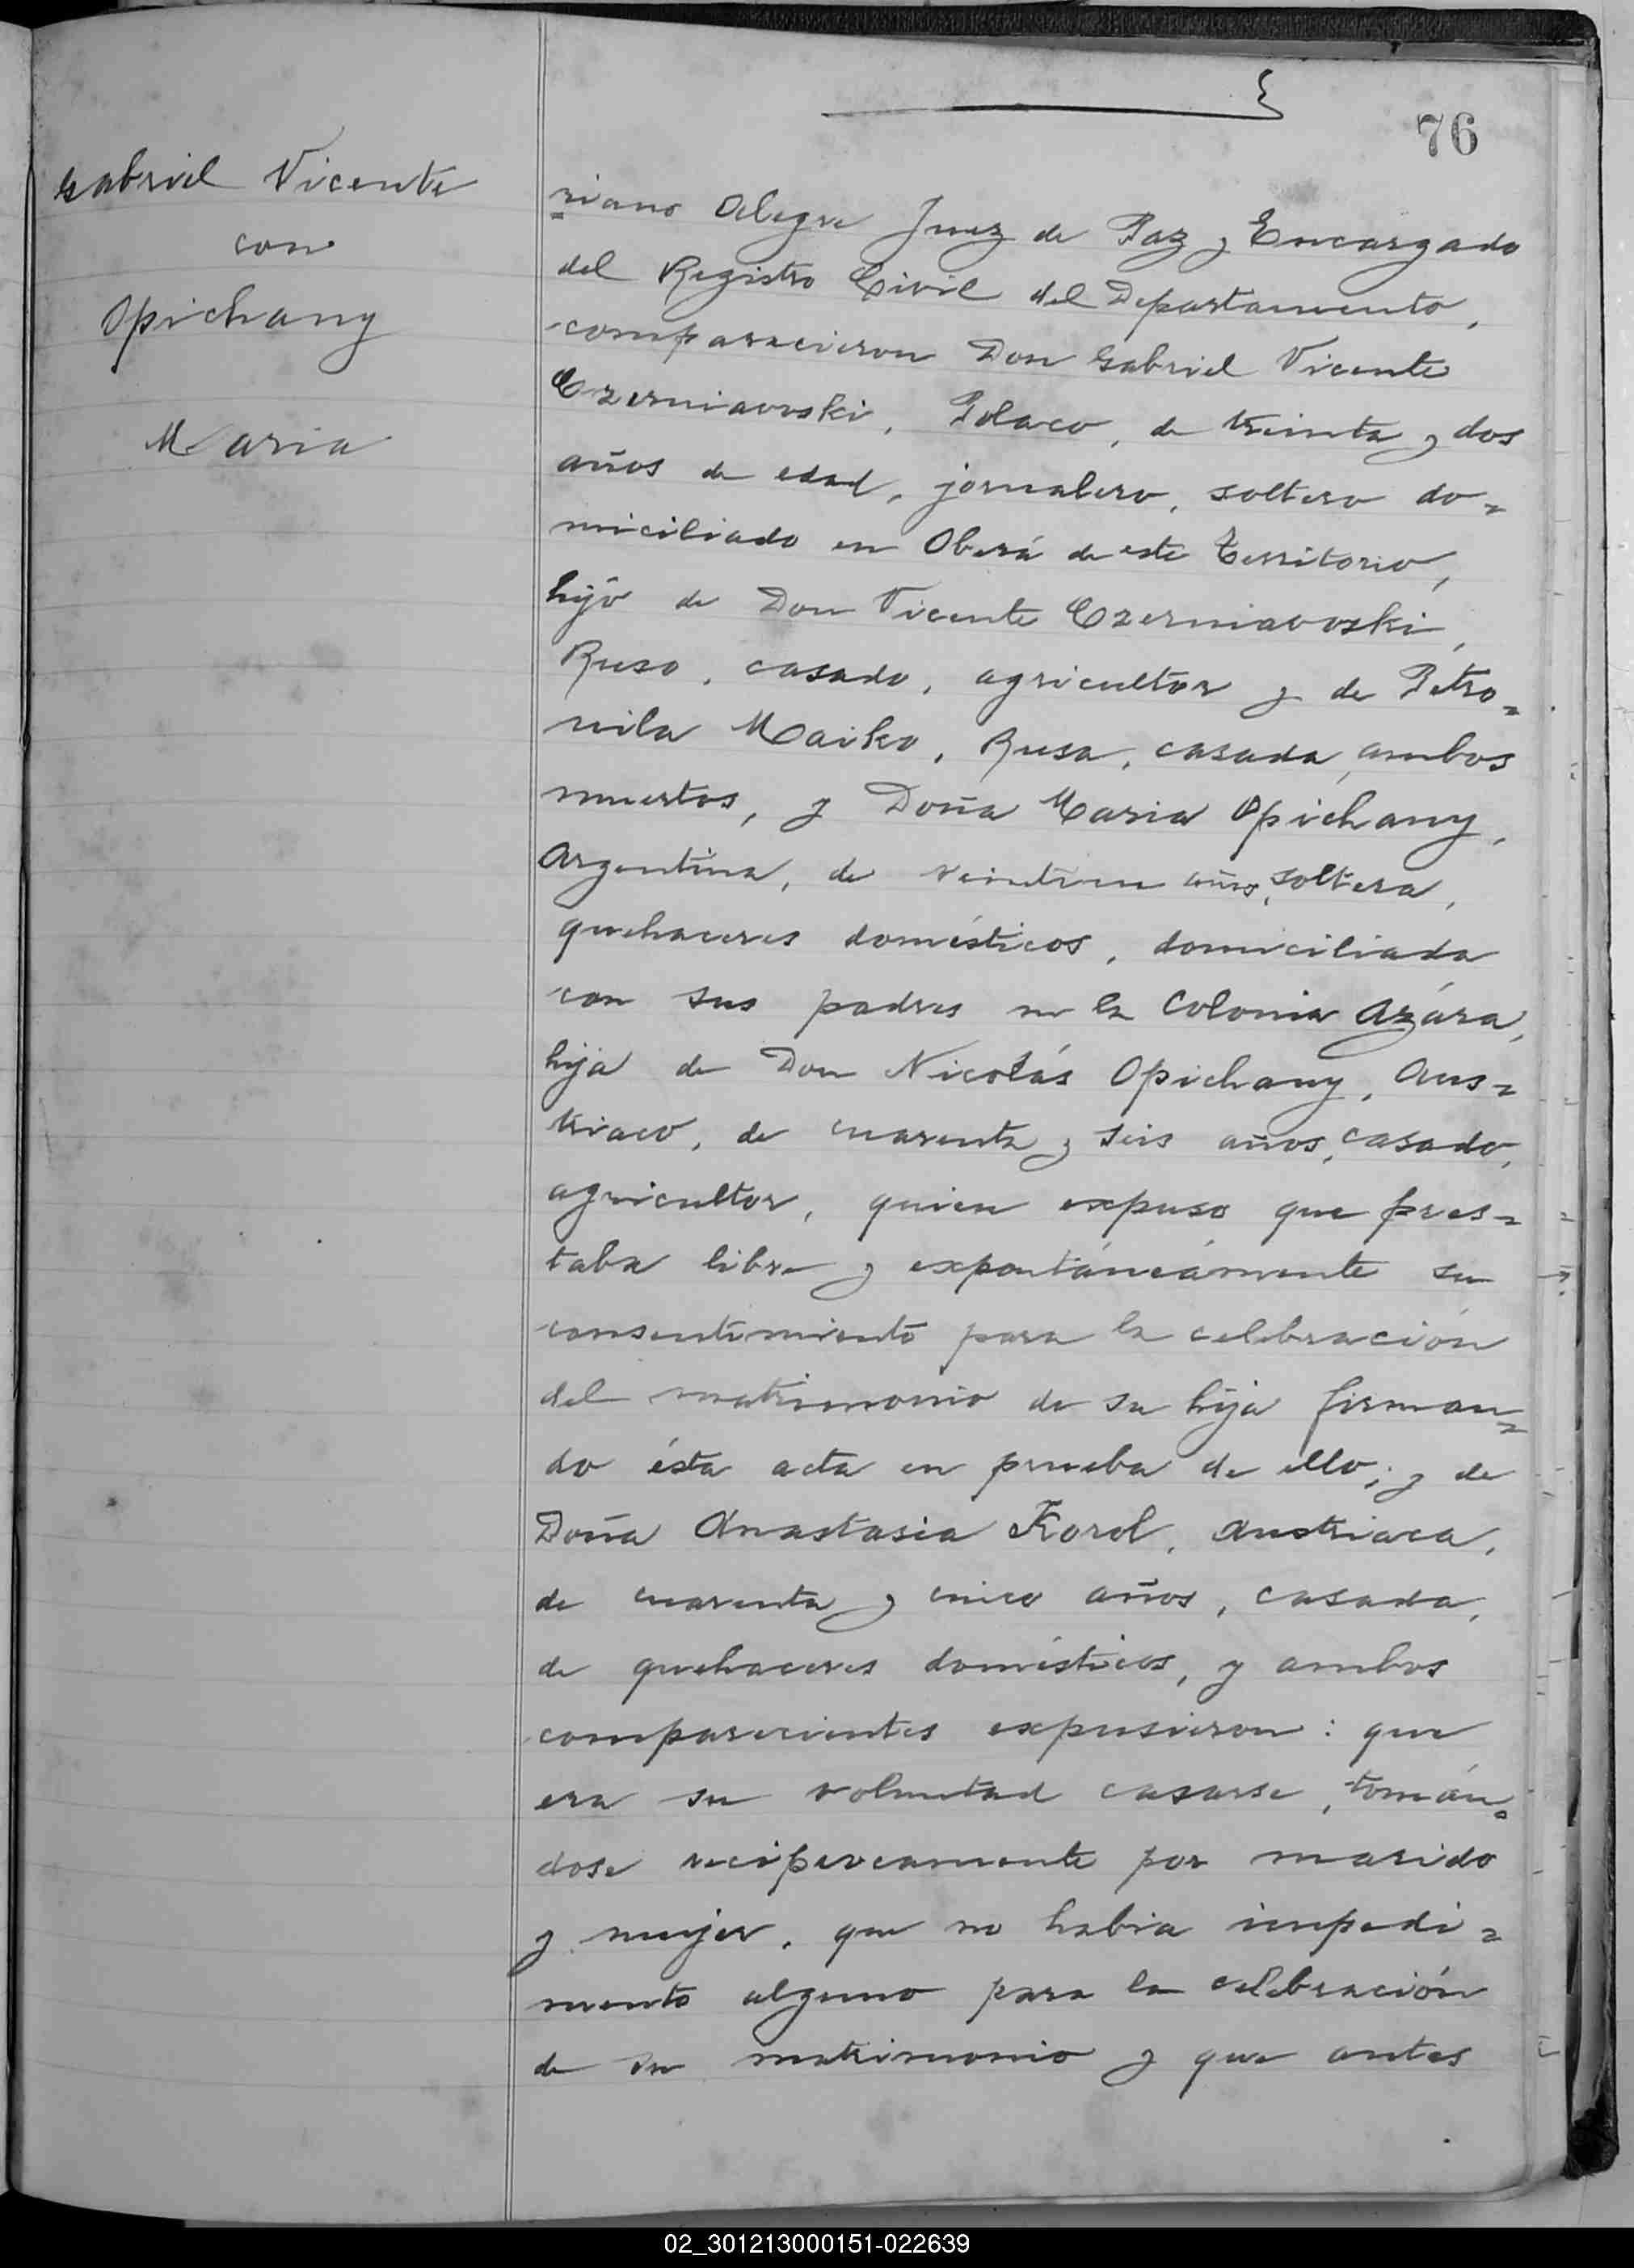 76
Gabriel Vicente
con
Opichany
Maria
riano Alegre Juez de Paz y Encargado
del Registro Civil del Departamento,
comparecieron Don Gabriel Vicente
Czerniavoski, Polaco, de treinta y dos
años de edad, jornalero, soltero do=
miciliado en Oberá de este Territorio,
hijo de Don Vicente Czerniavoski,
Ruso, casado, agricultor y de Petro=
nila Maiko, Rusa, casada, ambos
muertos, y Doña Maria Opichany,
Argentina, de veintiun años, soltera,
quehaceres domésticos, domiciliada
con sus padres en la Colonia Azára,
hija de Don Nicolás Opichany, Aus=
triaco, de cuarenta y seis años, casado,
agricultor, quien expuso que pres=
taba libre y expontáneámente su
consentimiento para la celebración
del matrimonio de su hija firman=
do ésta acta en prueba de ello; y de
Doña Anastasia Korol, Austriaca,
de cuarenta y cinco años, casada,
de quehaceres domésticos, y ambos
comparecientes expusieron: que
era su voluntad casarse, tomán=
dose reciprocamente por marido
y mujer, que no habia impedi=
mento alguno para la celebración
de su matrimonio y que antes
02_301213000151-022639